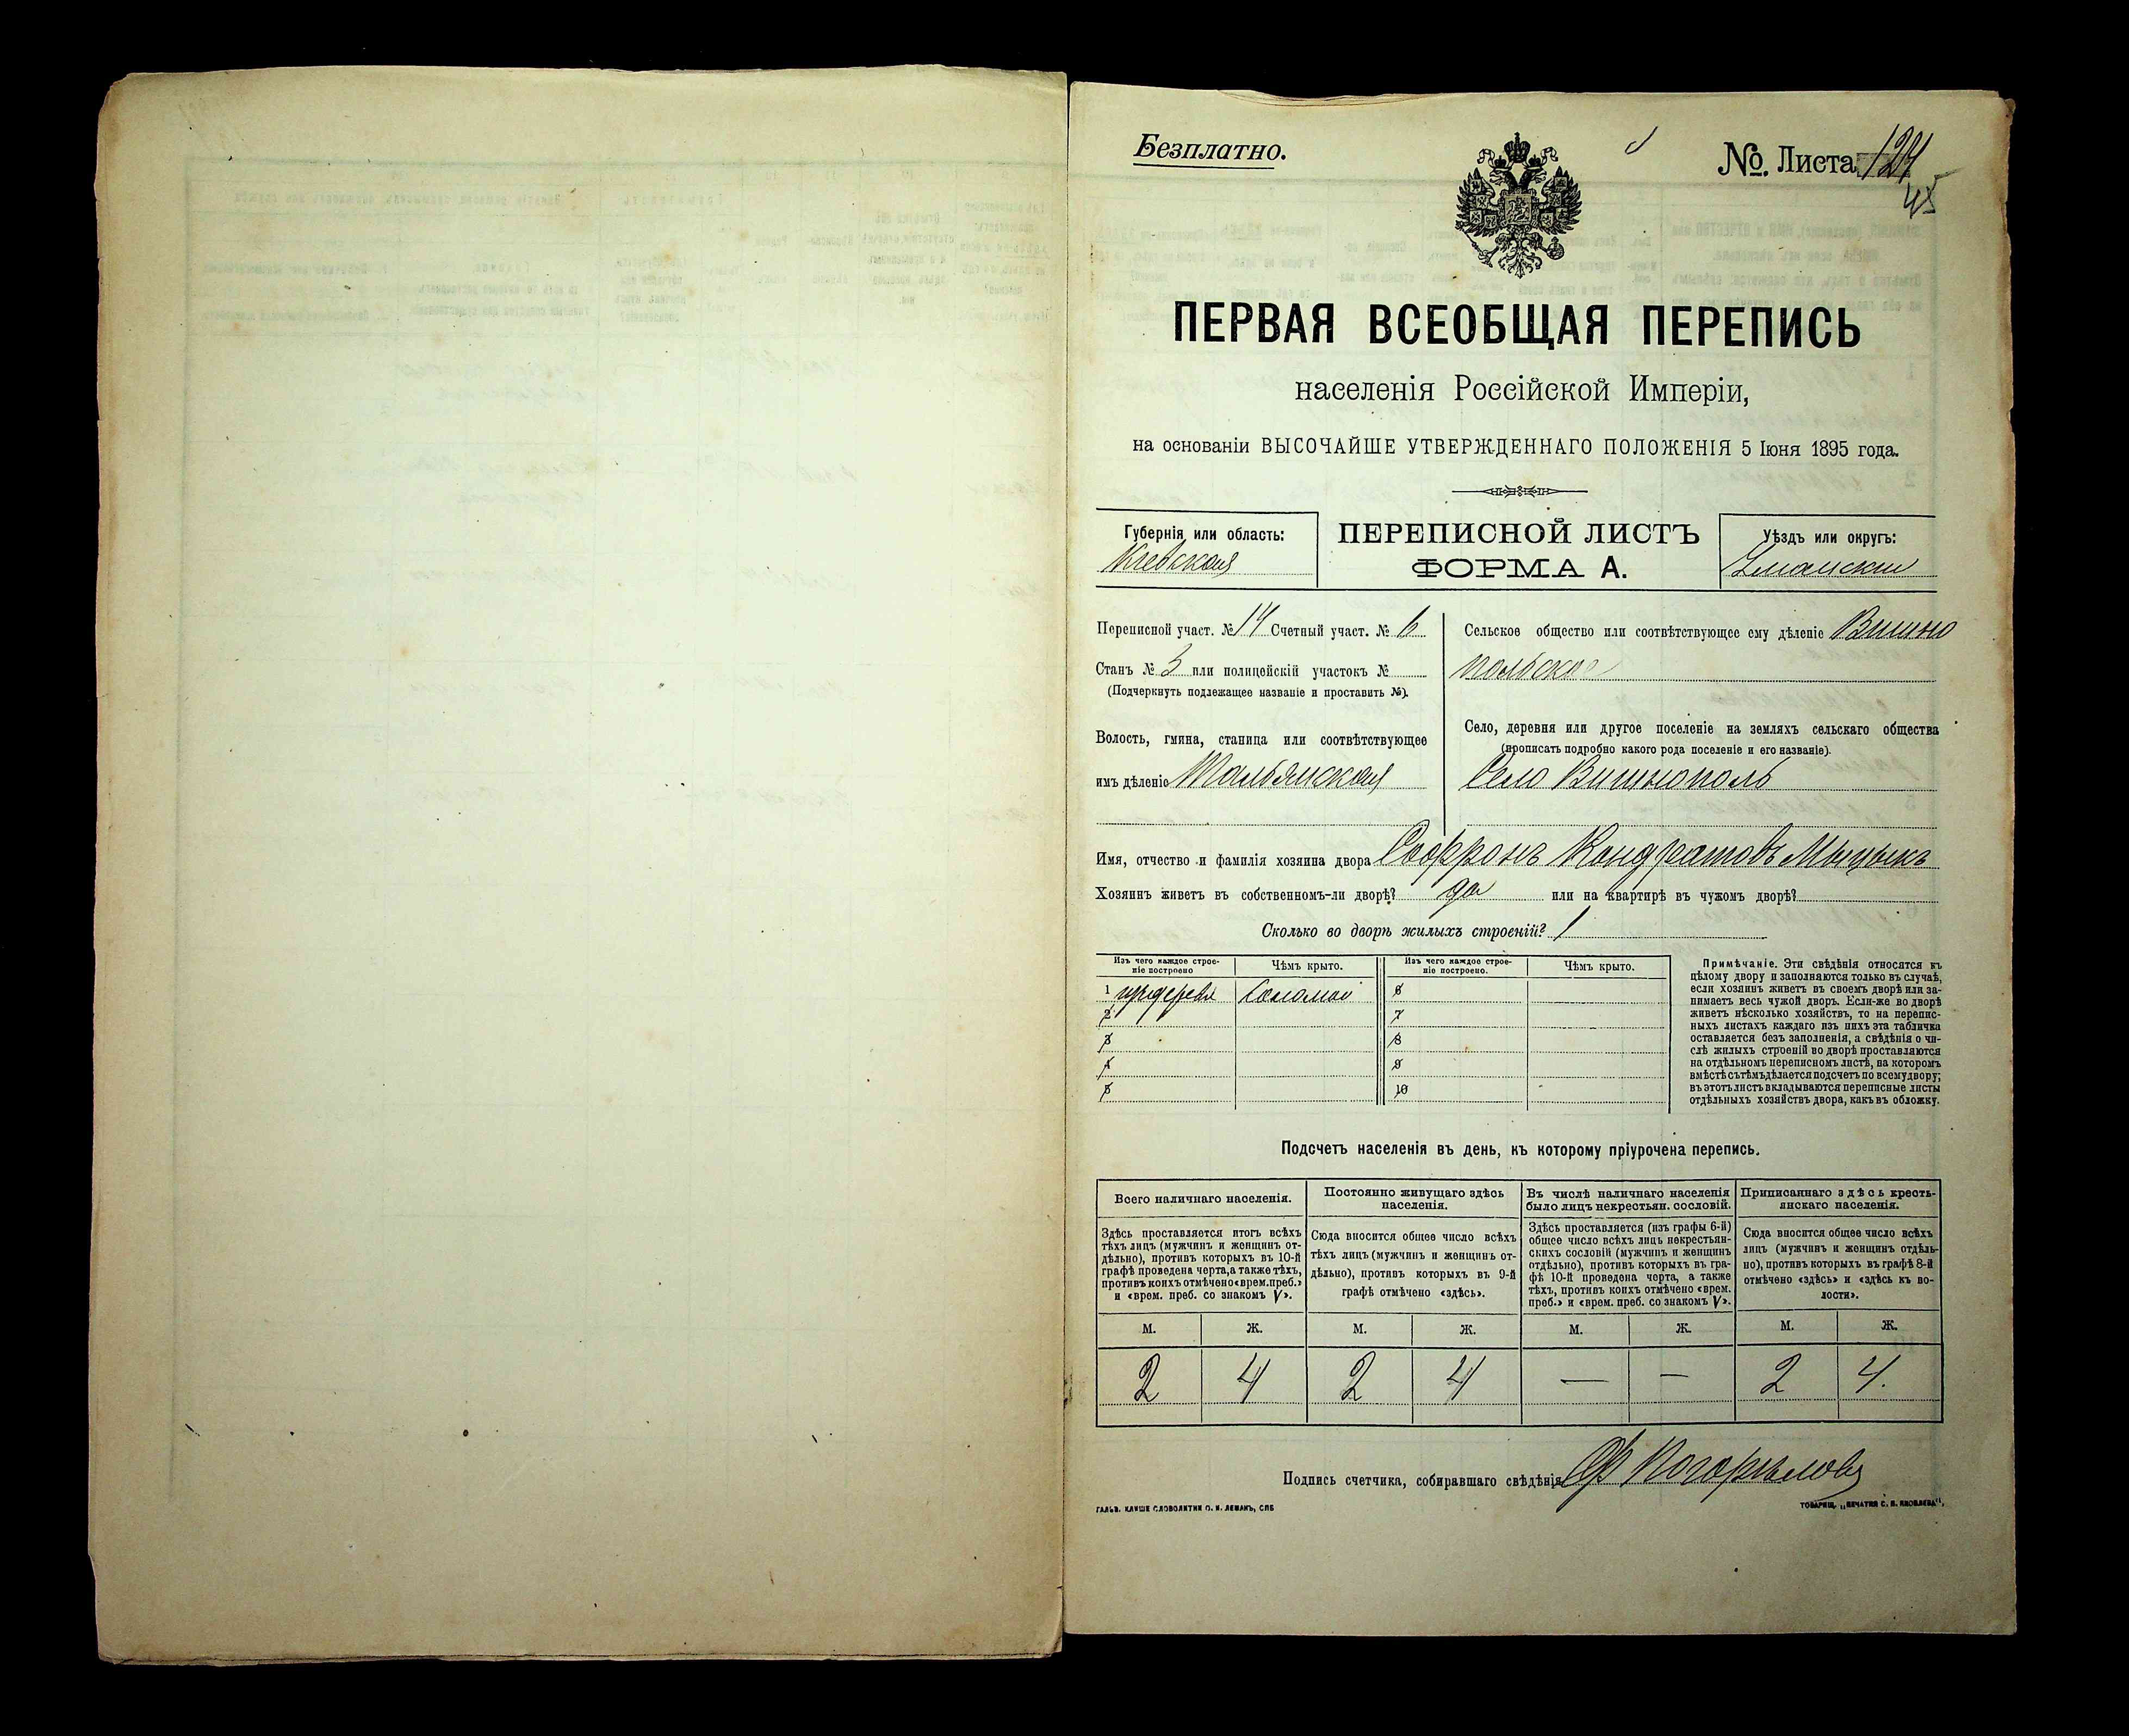 Безплатно.
№. Листа 124
45
ПЕРВАЯ ВСЕОБЩАЯ ПЕРЕПИСЬ
населенія Россійской Имперіи,
на основаніи ВЫСОЧАЙШЕ УТВЕРЖДЕННАГО ПОЛОЖЕНІЯ 5 Іюня 1895 года.
Губернія или область:
Кіевская
ПЕРЕПИСНОЙ ЛИСТЪ
ФОРМА А.
Уѣздъ или округъ:
Уманскій
Переписной участ. № 14 Счетный участ. № 6
Станъ № 3 или полицейскій участокъ №
(Подчеркнуть подлежащее названіе и проставить №).
Волость, гмина, станица или соотвѣтствующее
имъ дѣленіе Тальянская
Сельское общество или соотвѣтствующее ему дѣленіе Вишно
польское
Село, деревня или другое поселеніе на земляхъ сельскаго общества
(прописать подробно какого рода поселеніе и его названіе).
Село Вишнополь
Имя, отчество и фамилія хозяина двора Софронъ Кондратовъ Мыцыкъ
Хозяинъ живетъ въ собственномъ-ли дворѣ? да или на квартирѣ въ чужомъ дворѣ?
Сколько во дворѣ жилыхъ строеній? 1
Изъ чего каждое строе-
ніе построено
Чѣмъ крыто.
Изъ чего каждое строе-
ніе построено.
Чѣмъ крыто.
1 изъ дерева Соломой
2
3
4
5
6
7
8
9
10
Примѣчаніе. Эти свѣдѣнія относятся къ
цѣлому двору и заполняются только въ случаѣ,
если хозяинъ живетъ въ своемъ дворѣ или за-
нимаетъ весь чужой дворъ. Если-же во дворѣ
живетъ нѣсколько хозяйствъ, то на перепис-
ныхъ листахъ каждаго изъ нихъ эта табличка
оставляется безъ заполненія, а свѣдѣнія о чи-
слѣ жилыхъ строеній во дворѣ проставляются
на отдѣльномъ переписномъ листѣ, на которомъ
вмѣстѣ съ тѣмъ дѣлается подсчетъ по всему двору;
въ этотъ листъ вкладываются переписные листы
отдѣльныхъ хозяйствъ двора, какъ въ обложку.
Подсчетъ населенія въ день, къ которому пріурочена перепись.
Всего наличнаго населенія.
Здѣсь проставляется итогъ всѣхъ
тѣхъ лицъ (мужчинъ и женщинъ от-
дѣльно), противъ которыхъ въ 10-й
графѣ проведена черта, а также тѣхъ,
противъ коихъ отмѣчено «врем. преб.»
и «врем. преб. со знакомъ V».
Постоянно живущаго здѣсь
населенія.
Сюда вносится общее число всѣхъ
тѣхъ лицъ (мужчинъ и женщинъ от-
дѣльно), противъ которыхъ въ 9-й
графѣ отмѣчено «здѣсь».
Въ числѣ наличнаго населенія
было лицъ некрестьян. сословій.
Здѣсь проставляется (изъ графы 6-й)
общее число всѣхъ лицъ некрестьян-
скихъ сословій (мужчинъ и женщинъ
отдѣльно), противъ которыхъ въ гра-
фѣ 10-й проведена черта, а также
тѣхъ, противъ коихъ отмѣчено «врем.
преб.» и «врем. преб. со знакомъ V».
Приписаннаго здѣсь кресть-
янскаго населенія.
Сюда вносится общее число всѣхъ
лицъ (мужчинъ и женщинъ отдѣль-
но), противъ которыхъ въ графѣ 8-й
отмѣчено «здѣсь» и «здѣсь къ во-
лости».
М. Ж. М. Ж. М. Ж. М. Ж.
2 4 2 4 — — 2 4.
Подпись счетчика, собиравшаго свѣдѣнія Погорѣловъ
ГАЛЬВ. КЛИШЕ СЛОВОЛИТНИ О. И. ЛЕМАНЪ, СПБ
ТОВАРИЩ. „ПЕЧАТНЯ С. П. ЯКОВЛЕВА“,